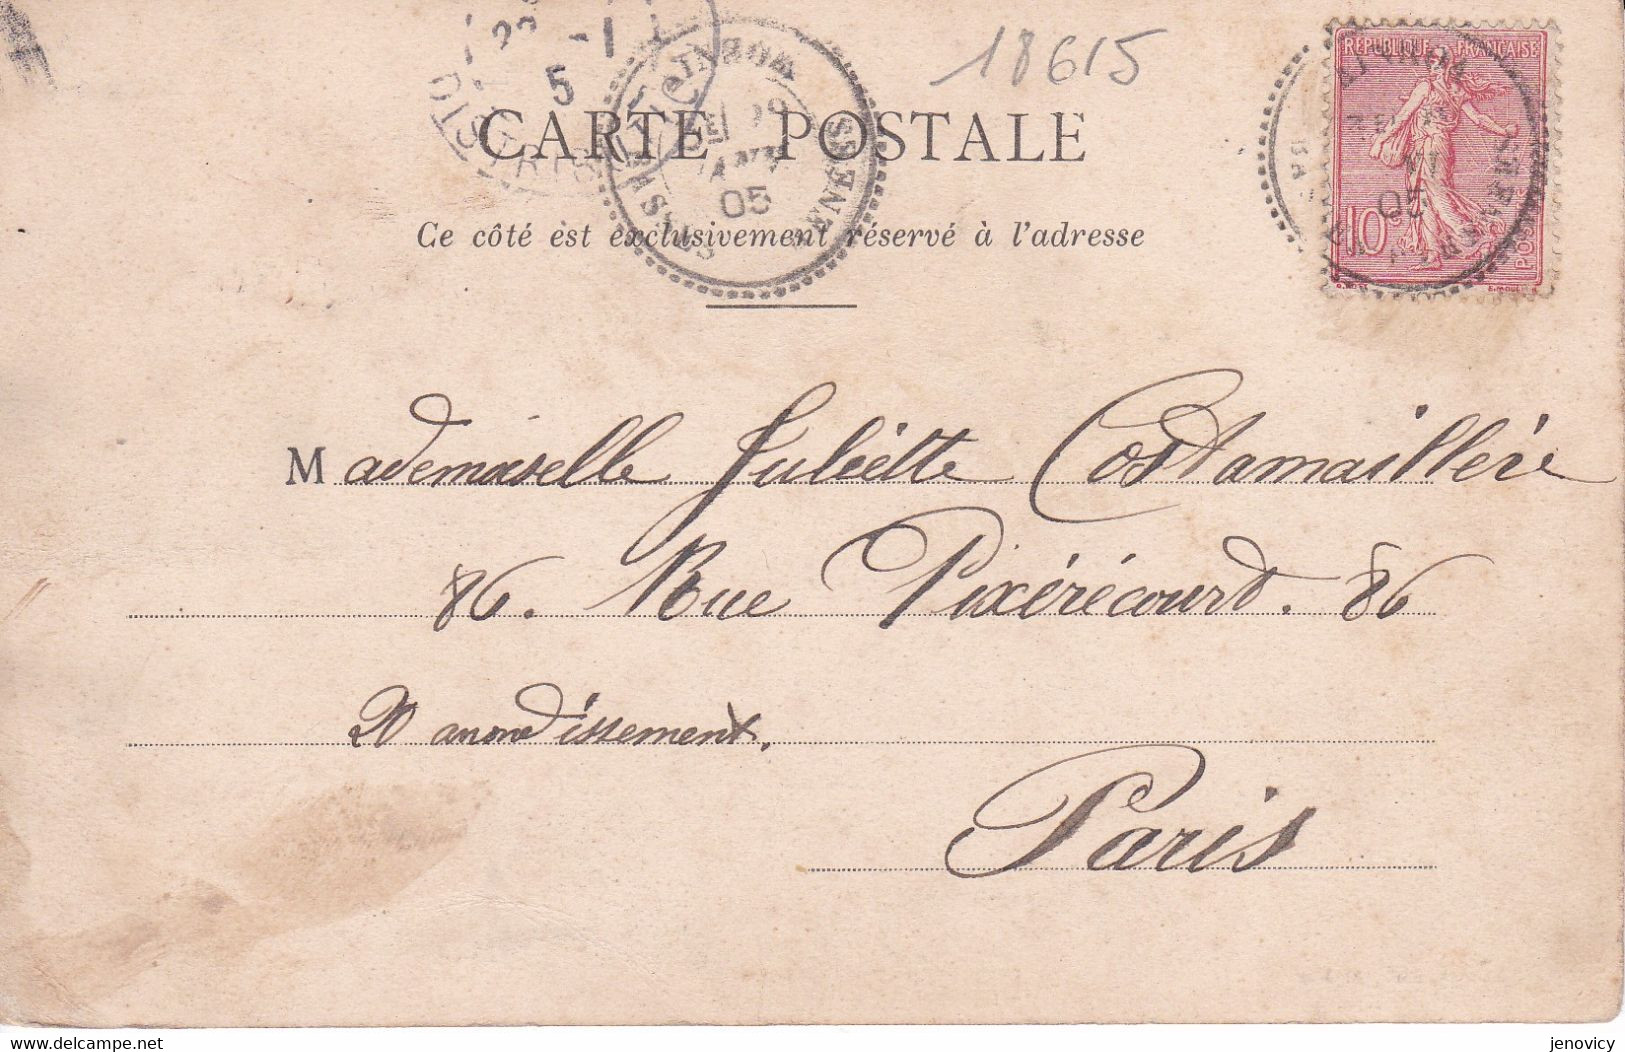 18615
RÉPUBLIQUE FRANÇAISE
CARTE POSTALE
05
05
10
Ce côté est exclusivement réservé à l'adresse
Mademoiselle Juliétte Costamaillére
86. Rue Pixérécourt. 86
20 arrondissement.
Paris
www.delcampe.net
jenovicy